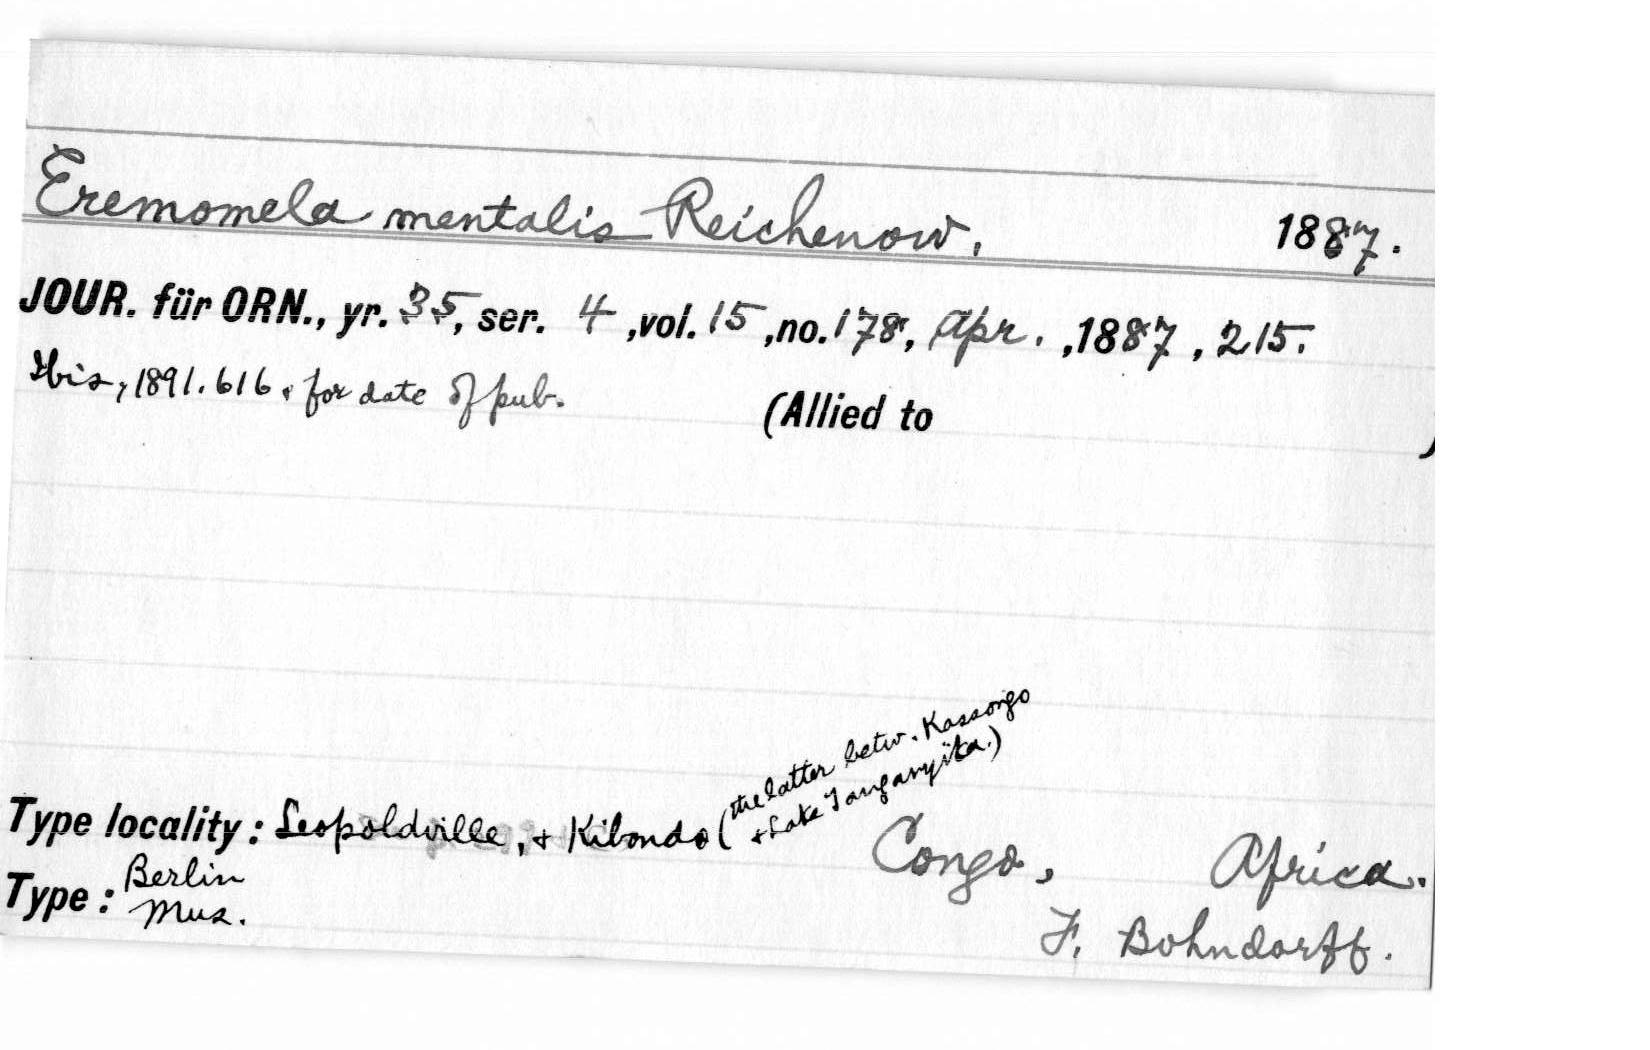 Eremomela mentalis Reichenow, 1887.
JOUR. für ORN., yr. 35, ser. 4, vol. 15, no. 178, Apr., 1887, 215.
Ibis, 1891. 616, for date of pub.
(Allied to )
Type locality: Leopoldville, + Kibondo (the latter betw. Kassongo
+ Lake Tanganyika.)
Congo, Africa.
Type: Berlin
Mus.
F. Bohndorff.